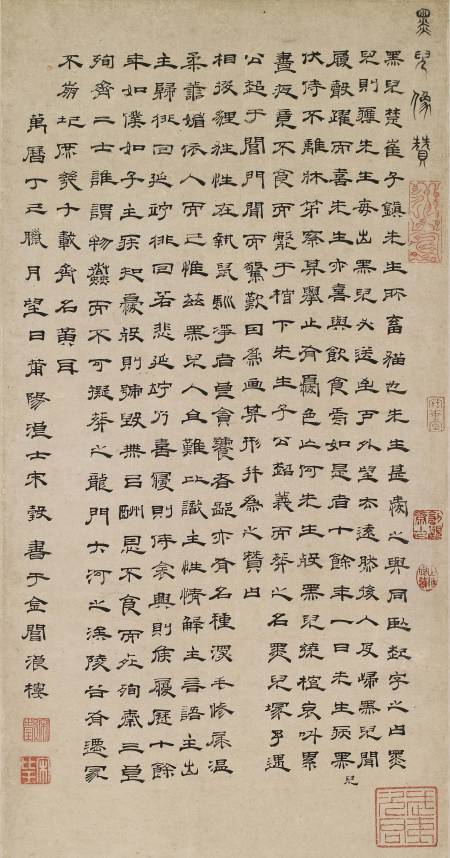 黑兒像贊
黑兒楚崔子鎮先生所畜猫也先生甚愛之與同臥起字之曰黑
兒則應先生每出黑兒必送至戶外望去遠然後入及歸黑兒聞
履聲躍而喜先生亦喜與飲食焉如是者十餘年一日先生病黑兒
伏侍不離牀笫察其舉止有憂色亡何先生歿黑兒繞棺哀叫累
晝夜竟不食而斃于棺下先生子公超義而葬之名黑兒塚予遇
公超于閶門聞而驚歎因為画其形并為之贊曰
相彼貍狌性在執鼠馴淨者是貪饕者鄙亦有名種深毛修尾溫
柔媚依人而已惟茲黑兒人且難比識主性情解主言語主出
主歸徘回延竚徘回若悲延竚乃喜寢則侍衾興則俟履歷十餘
年如僕如子主病知憂歿則號毀無以酬恩不食而死殉秦三
殉齊二士誰謂物蠢而不可擬葬之龍門大河之涘陵谷有遷冢
不崩圮庶幾千載齊名黃耳
萬曆丁巳臘月望日莆陽士宋瑴書于金閶浪樓